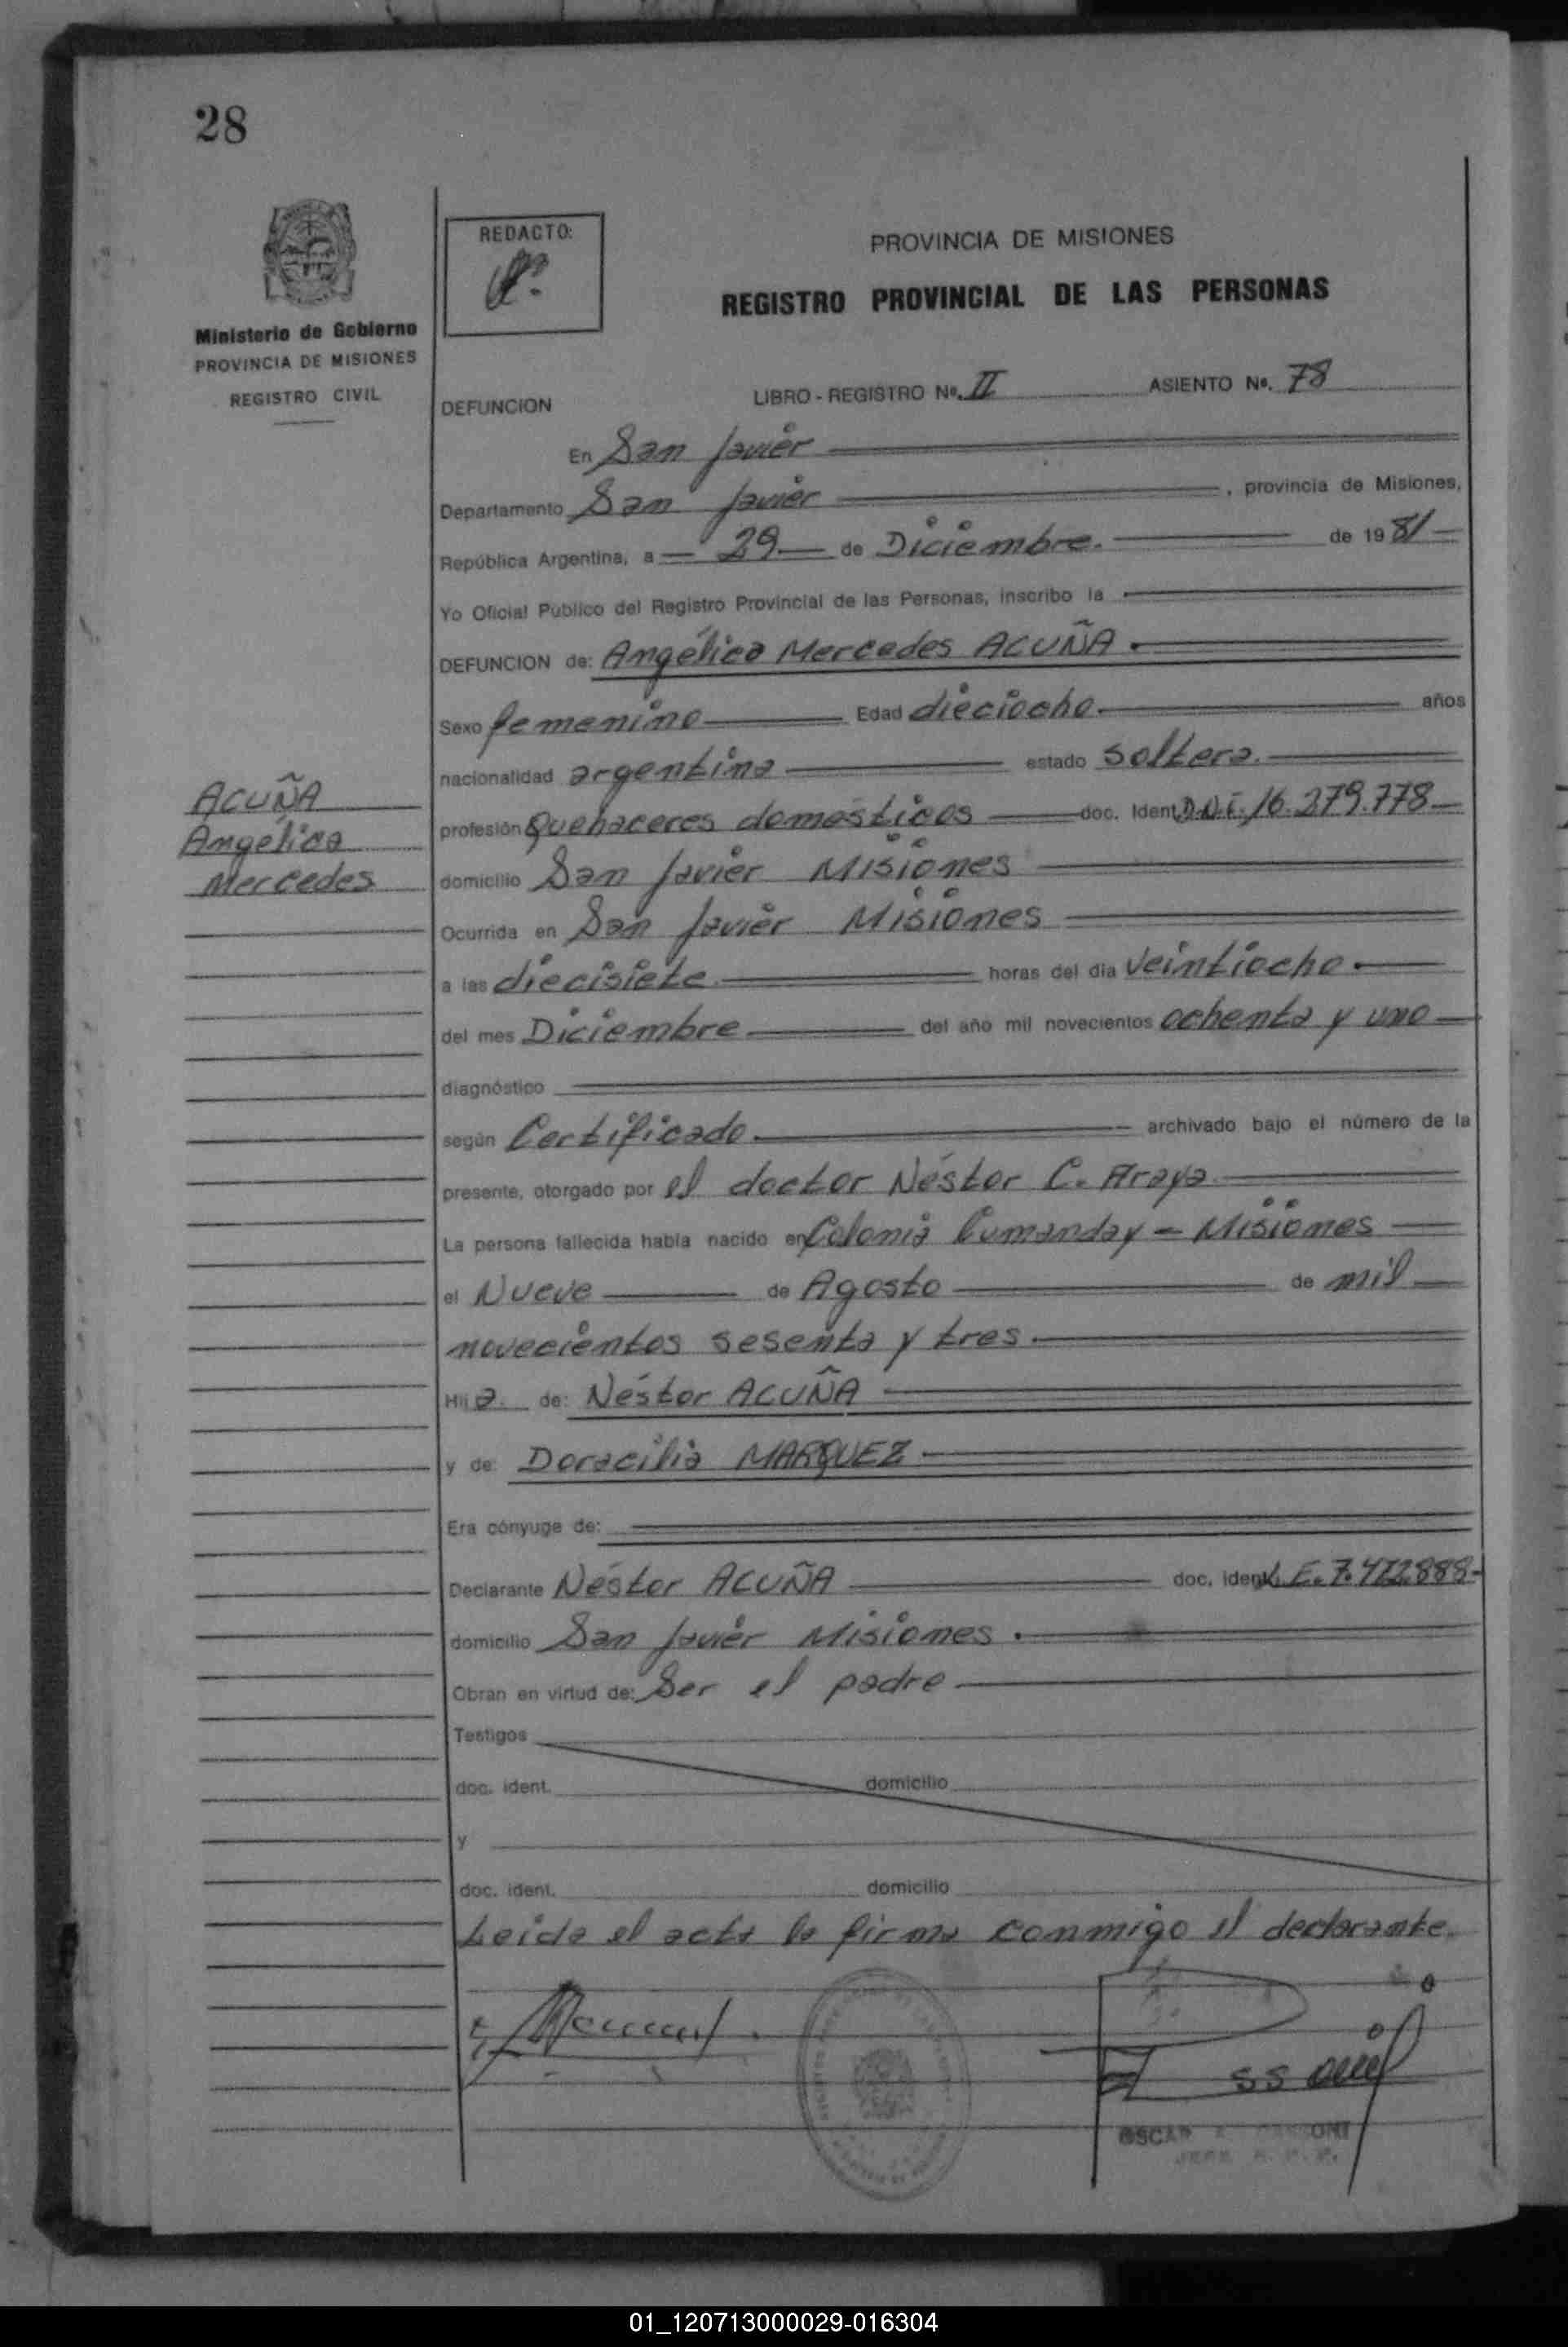 28
REDACTO:
Ministerio de Gobierno
PROVINCIA DE MISIONES
REGISTRO CIVIL
PROVINCIA DE MISIONES
REGISTRO PROVINCIAL DE LAS PERSONAS
DEFUNCION LIBRO - REGISTRO Nº. II ASIENTO Nº. 78
En San Javier
Departamento San Javier, provincia de Misiones,
República Argentina, a 29 de Diciembre. de 1981
Yo Oficial Público del Registro Provincial de las Personas, inscribo la
DEFUNCION de: Angélica Mercedes ACUÑA.
Sexo femenino Edad dieciocho años
nacionalidad argentina estado soltera.
ACUÑA
Angélica
Mercedes
profesión Quehaceres domésticos doc. Ident. D.N.I. 16.279.778
domicilio San Javier Misiones
Ocurrida en San Javier Misiones
a las diecisiete horas del día Veintiocho.
del mes Diciembre del año mil novecientos ochenta y uno
diagnóstico
según Certificado. archivado bajo el número de la
presente, otorgado por el doctor Néstor C. Araya
La persona fallecida había nacido en Colonia Cumanday - Misiones
el Nueve de Agosto de mil
novecientos sesenta y tres.
Hij a. de: Néstor ACUÑA
y de: Doracilia MARQUEZ
Era cónyuge de:
Declarante Néstor ACUÑA doc. ident. L.E. 7.472.888-
domicilio San Javier Misiones.
Obran en virtud de: Ser el padre
Testigos
doc. ident. domicilio
y
doc. ident. domicilio
Leída el acta la firma conmigo el declarante.
OSCAR
JEFE R. P. P.
01_120713000029-016304